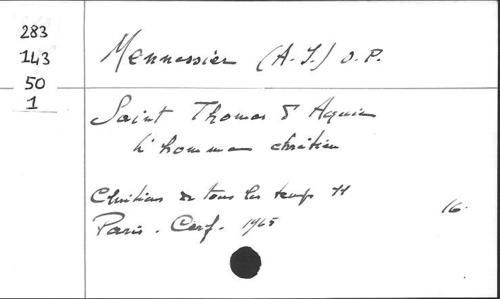 283
143
50
1
Mennessier (A.I.) O.P.
Saint Thomas d'Aquin
L'homme chrétien
Chrétiens de tous les temps 11
Paris. Cerf. 1965
16.